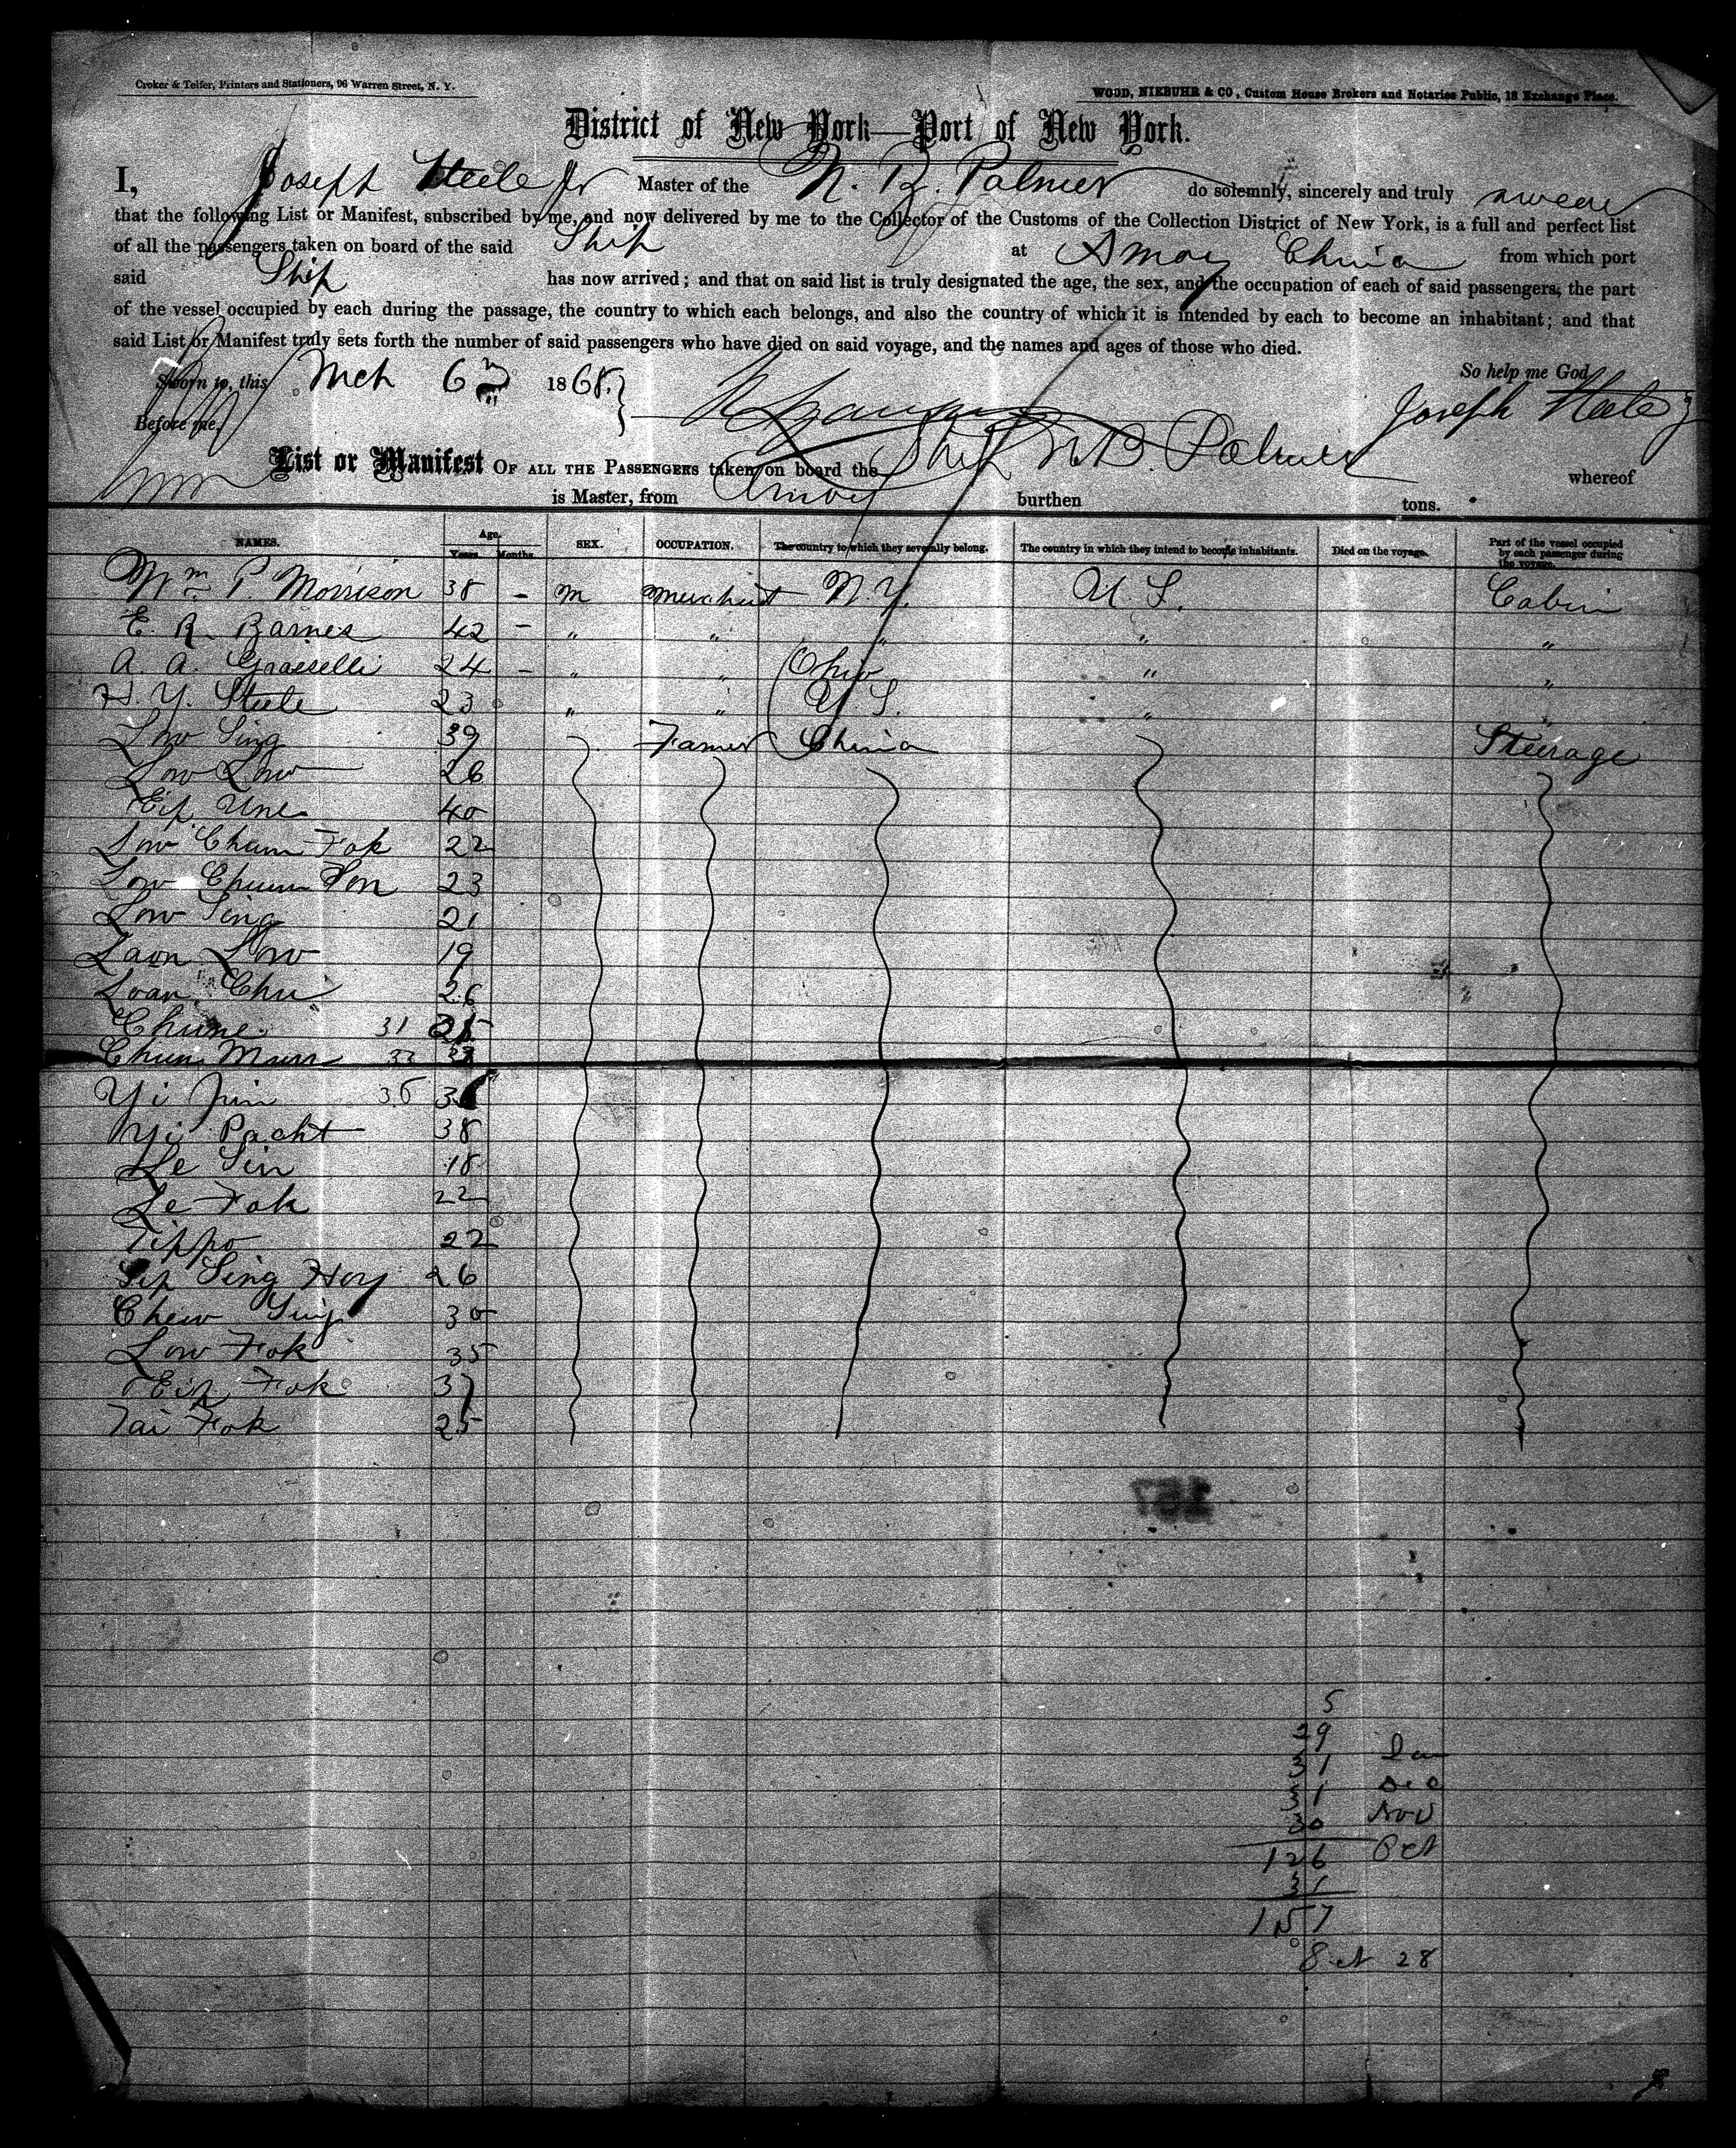 Croker & Telfer, Printers and Stationers, 96 Warren Street, N. Y.
WOOD, NIEBUHR & CO., Custom House Brokers and Notaries Public, 18 Exchange Place.
District of New York—Port of New York.
I, Joseph Steele Jr Master of the N. B. Palmer do solemnly, sincerely and truly swear
that the following List or Manifest, subscribed by me, and now delivered by me to the Collector of the Customs of the Collection District of New York, is a full and perfect list
of all the passengers taken on board of the said Ship at Amoy China from which port
said Ship has now arrived; and that on said list is truly designated the age, the sex, and the occupation of each of said passengers, the part
of the vessel occupied by each during the passage, the country to which each belongs, and also the country of which it is intended by each to become an inhabitant; and that
said List or Manifest truly sets forth the number of said passengers who have died on said voyage, and the names and ages of those who died.
So help me God,
Sworn to, this Mch 6 1868.
Before me, Joseph Steele Jr
List or Manifest OF ALL THE PASSENGERS taken on board the Ship N. B. Palmer whereof
is Master, from Amoy burthen tons.
NAMES. Age. Years. Months. SEX. OCCUPATION. The country to which they severally belong. The country in which they intend to become inhabitants. Died on the voyage. Part of the vessel occupied by each passenger during the voyage.
Wm P. Morrison 38 - m merchant N. Y. U. S. Cabin
E. R. Barnes 42 - " " " " "
A. A. Grasselli 24 - " " Ohio " "
H. Y. Steele 23 " " U. S. " "
Low Sing 39 Farmer China Steerage
Low Low 26
Eip Une 40
Low Chum Fok 22
Low Chum Fon 23
Low Sing 21
Laon Low 19
Loan Chu 26
Chume 31
Chun Mun 33
Yi Jim 36
Yi Pacht 38
Le Sin 18
Le Fok 22
Tippo 22
Yip Sing Hoy 26
Chew Sing 30
Low Fok 35
Eip Fok 37
Tai Fok 25
157
5
29
31 Jan
31 Dec
30 Nov
126 Oct
31
157
Oct 28